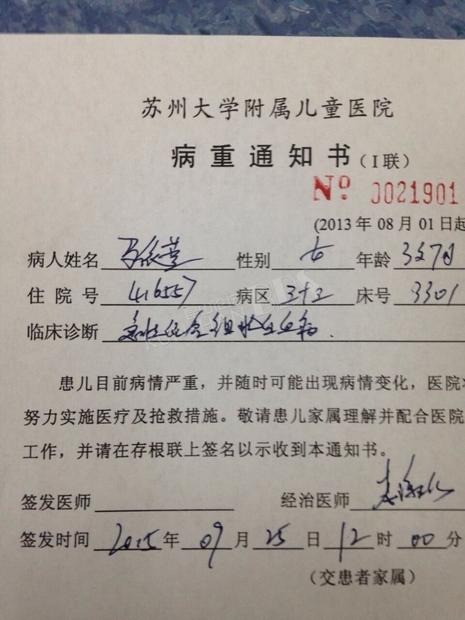 苏州大学附属儿童医院
病重通知书（I联）
Nº 0021901
（2013年08月01日起
病人姓名 马依萱 性别 女 年龄 3岁7月
住院号 416557 病区 3+2 床号 3301
临床诊断 急性
患儿目前病情严重，并随时可能出现病情变化，医院
努力实施医疗及抢救措施。敬请患儿家属理解并配合医院
工作，并请在存根联上签名以示收到本通知书。
签发医师 经治医师
签发时间 2015年 09月 25日 12时 00分
（交患者家属）